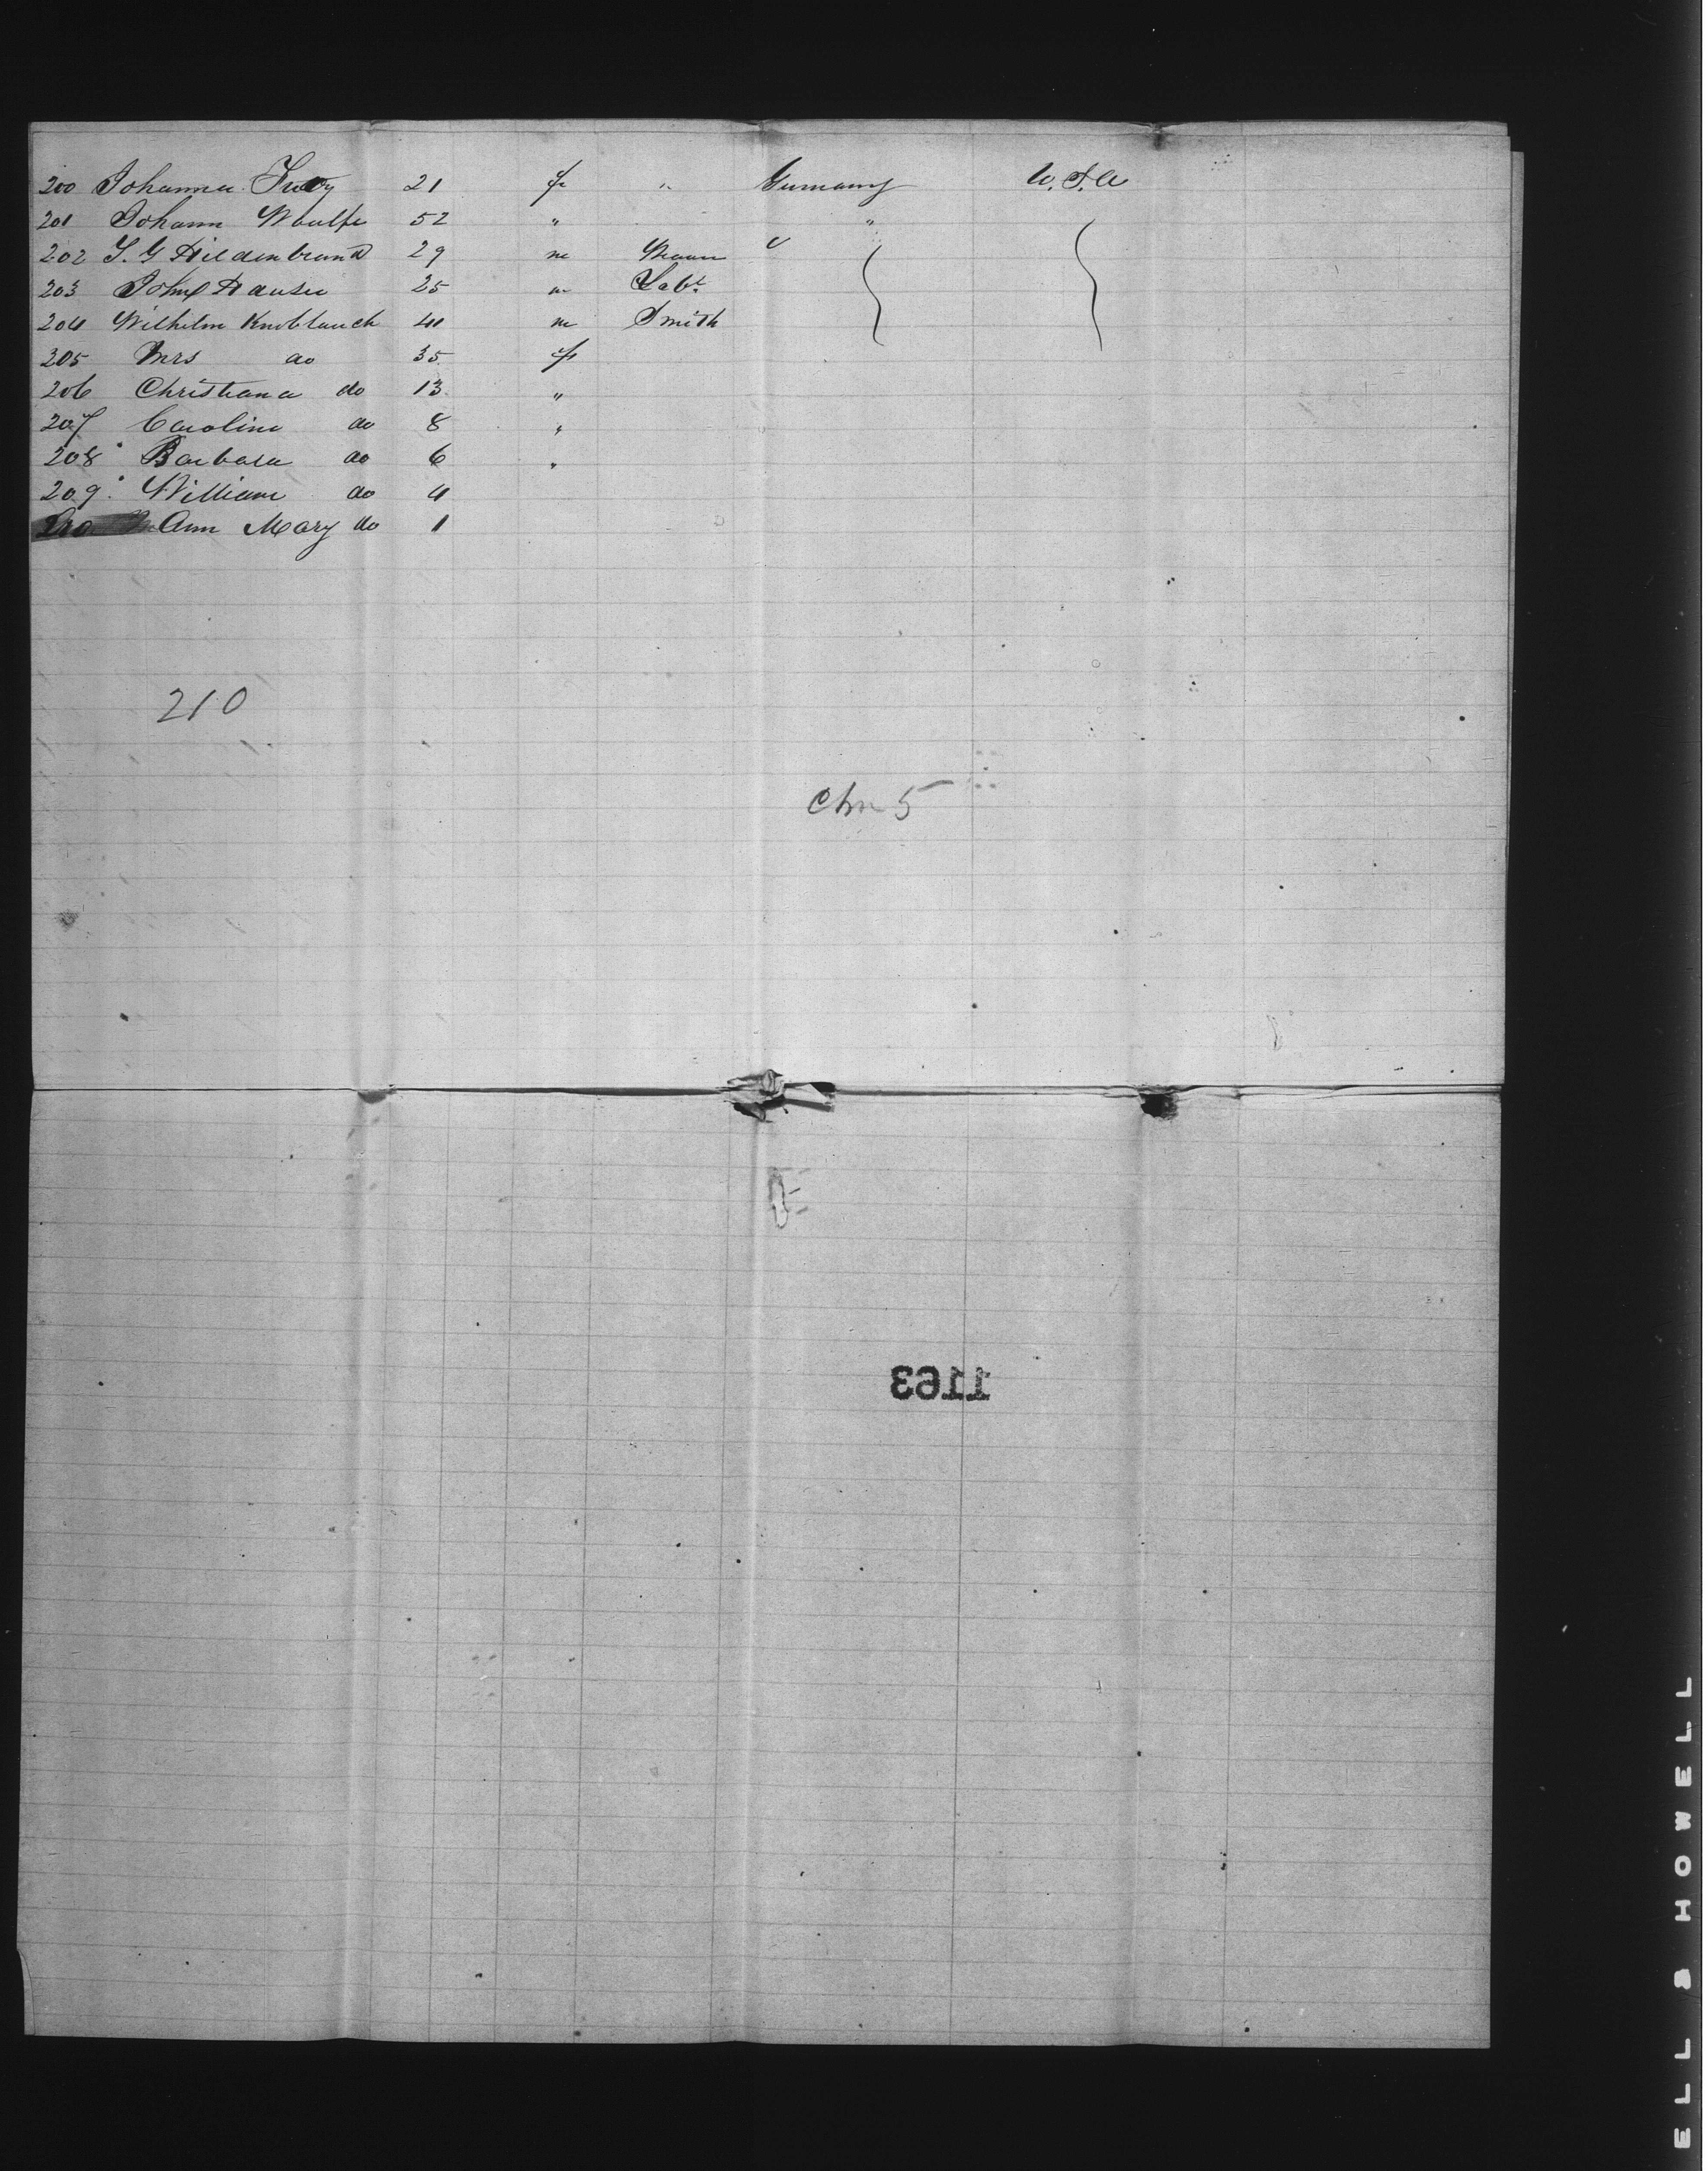 200 Johanna 21 f " Germany U.S.A
201 Johann Woulfe 52 " "
202 J. G Hildenbrand 29 m
203 John Hauser 25 m Labr
204 Wilhelm Knoblauch 40 m Smith
205 Mrs do 35 f
206 Christiana do 13 "
207 Caroline do 8 "
208 Barbara do 6 "
209 William do 4
210 Ann Mary do 1
210
Chn 5
1163
ELL & HOWELL